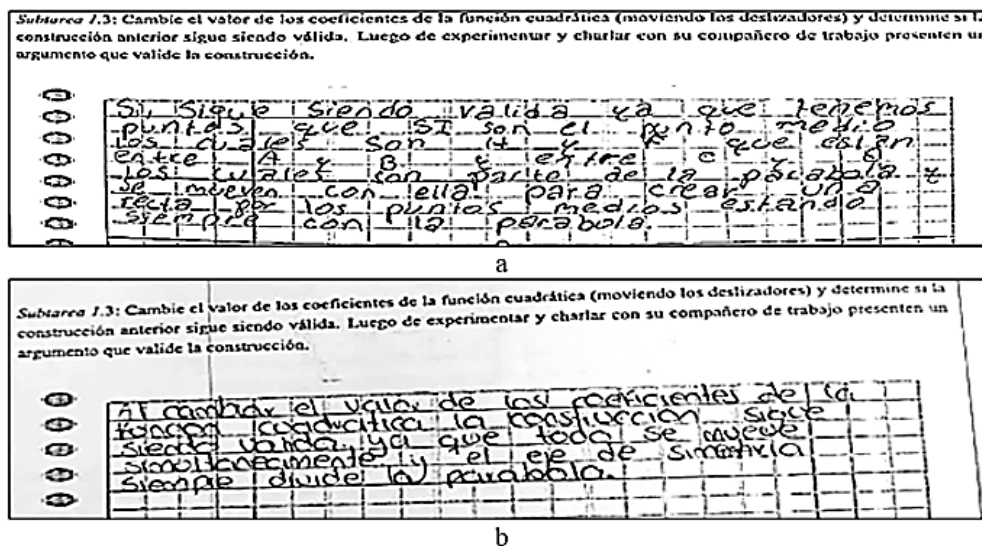 Subtarea 1.3: Cambie el valor de los coeficientes de la función cuadrática (moviendo los deslizadores) y determine si l
construcción anterior sigue siendo válida. Luego de experimentar y charlar con su compañero de trabajo presenten un
argumento que valide la construcción.
Si, Sigue Siendo valida ya que tenemos
puntos que SI son el punto medio
los cuales son H y que están
entre A y B y entre C y
los cuales son parte de la parabola y
se mueven con ella para crear una
recta por los puntos medios estando
siempre con la parabola.
a
Subtarea 1.3: Cambie el valor de los coeficientes de la función cuadrática (moviendo los deslizadores) y determine si la
construcción anterior sigue siendo válida. Luego de experimentar y charlar con su compañero de trabajo presenten un
argumento que valide la construcción.
Al cambiar el valor de los coeficientes de la
funcion cuadratica la construccion sigue
siendo valida, ya que todo se mueve
simultaneamente y el eje de simetria
siempre divide la parabola.
b